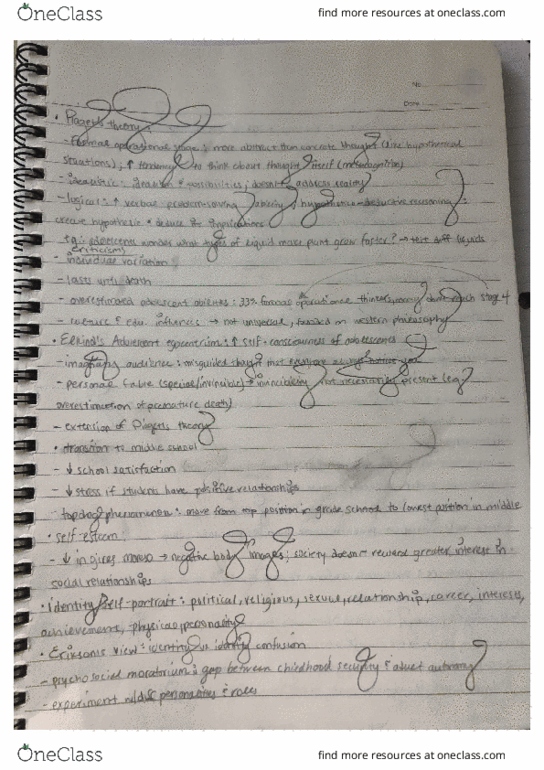 OneClass
find more resources at oneclass.com
No.
Date
• Piaget's theory:
- Formal operational stage: more abstract than concrete thought (like hypothetical
situations), ↑ tendency to think about thought itself (metacognition)
- idealistic: possibilities, doesn't address reality
- logical: ↑ verbal problem-solving ability, hypothetical-deductive reasoning:
create hypothesis & deduce its implications
eg: adolescent wonders what types of liquid make plant grow faster? → test diff liquids
criticisms
- individual variation
- lasts until death
- overestimated adolescent abilities: 33% formal operational thinkers, many don't reach stage 4
- culture & edu. influences → not universal, founded on western philosophy
• Elkind's Adolescent egocentrism: ↑ self-consciousness of adolescents
- imaginary audience: misguided thought that everyone always notice you
- personal fable (special/invincible) → invincibility not necessarily present (eg
overestimation of premature death)
- extension of Piaget's theory
• transition to middle school
- ↓ school satisfaction
- ↓ stress if students have positive relationships
- topdog phenomenon: move from top position in grade school to lowest position in middle
• self-esteem
- ↓ in girls → negative body images; society doesn't reward greater interest in
social relationships
• identity/self-portrait: political, religious, sexual, relationship, career, interests,
achievement, physical, personality
• Erikson's view: identity vs identity confusion
- psychosocial moratorium: gap between childhood security & adult autonomy
- experiment personalities & roles
OneClass
find more resources at oneclass.com